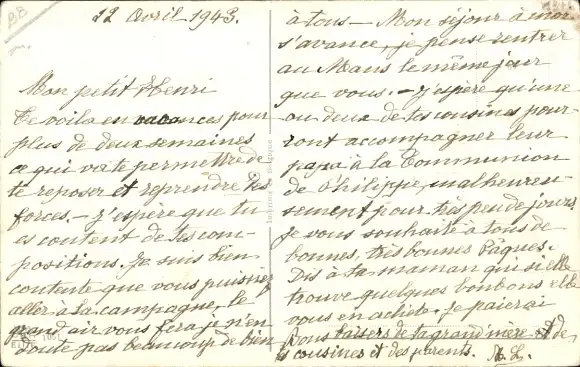 22 Avril 1943.
Mon petit Henri
Te voila en vacances pour
plus de deux semaines
ce qui va te permettre de
te reposer et reprendre tes
forces. - j'espère que tu
es content de tes com-
positions. Je suis bien
contente que vous puissiez
aller à la campagne, le
grand air vous fera je n'en
doute pas beaucoup de bien
à tous - Mon séjour à moi
s'avance, je pense rentrer
au Mans le même jour
que vous. - j'espère qu'une
ou deux de tes cousines pour-
ront accompagner leur
papa à la Communion
de Philippe, malheureu-
sement pour très peu de jours.
Je vous souhaite à tous de
bonnes, très bonnes Pâques.
Dis à ta maman qui si elle
trouve quelques bonbons elle
vous en achète, je paierai
Bons baisers de ta grand'mère et de
tes cousines et des parents. M. L.
Imprimé en Belgique